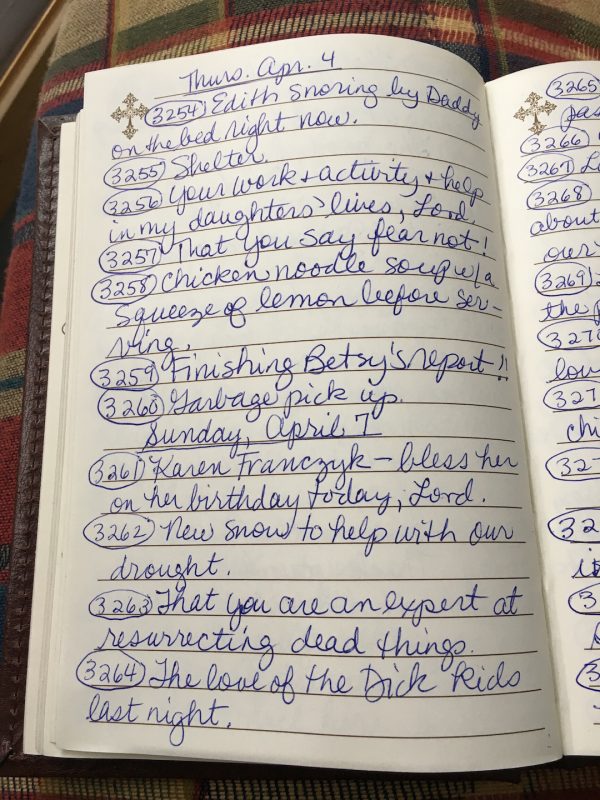 Thurs. Apr. 4
3254 Edith snoring by Daddy
on the bed right now.
3255 Shelter.
3256 Your work + activity + help
in my daughters' lives, Lord.
3257 That you say fear not!
3258 Chicken noodle soup w/a
squeeze of lemon before ser-
ving.
3259 Finishing Betsy's report-!!
3260 Garbage pick up.
Sunday, April 7
3261 Karen Franczyk - bless her
on her birthday today, Lord.
3262 New snow to help with our
drought.
3263 That you are an expert at
resurrecting dead things.
3264 The love of the Dick Kids
last night.
3265
pas
3266
3267 L
3268
about
our
3269
the p
3270
low
327
chi
327
32